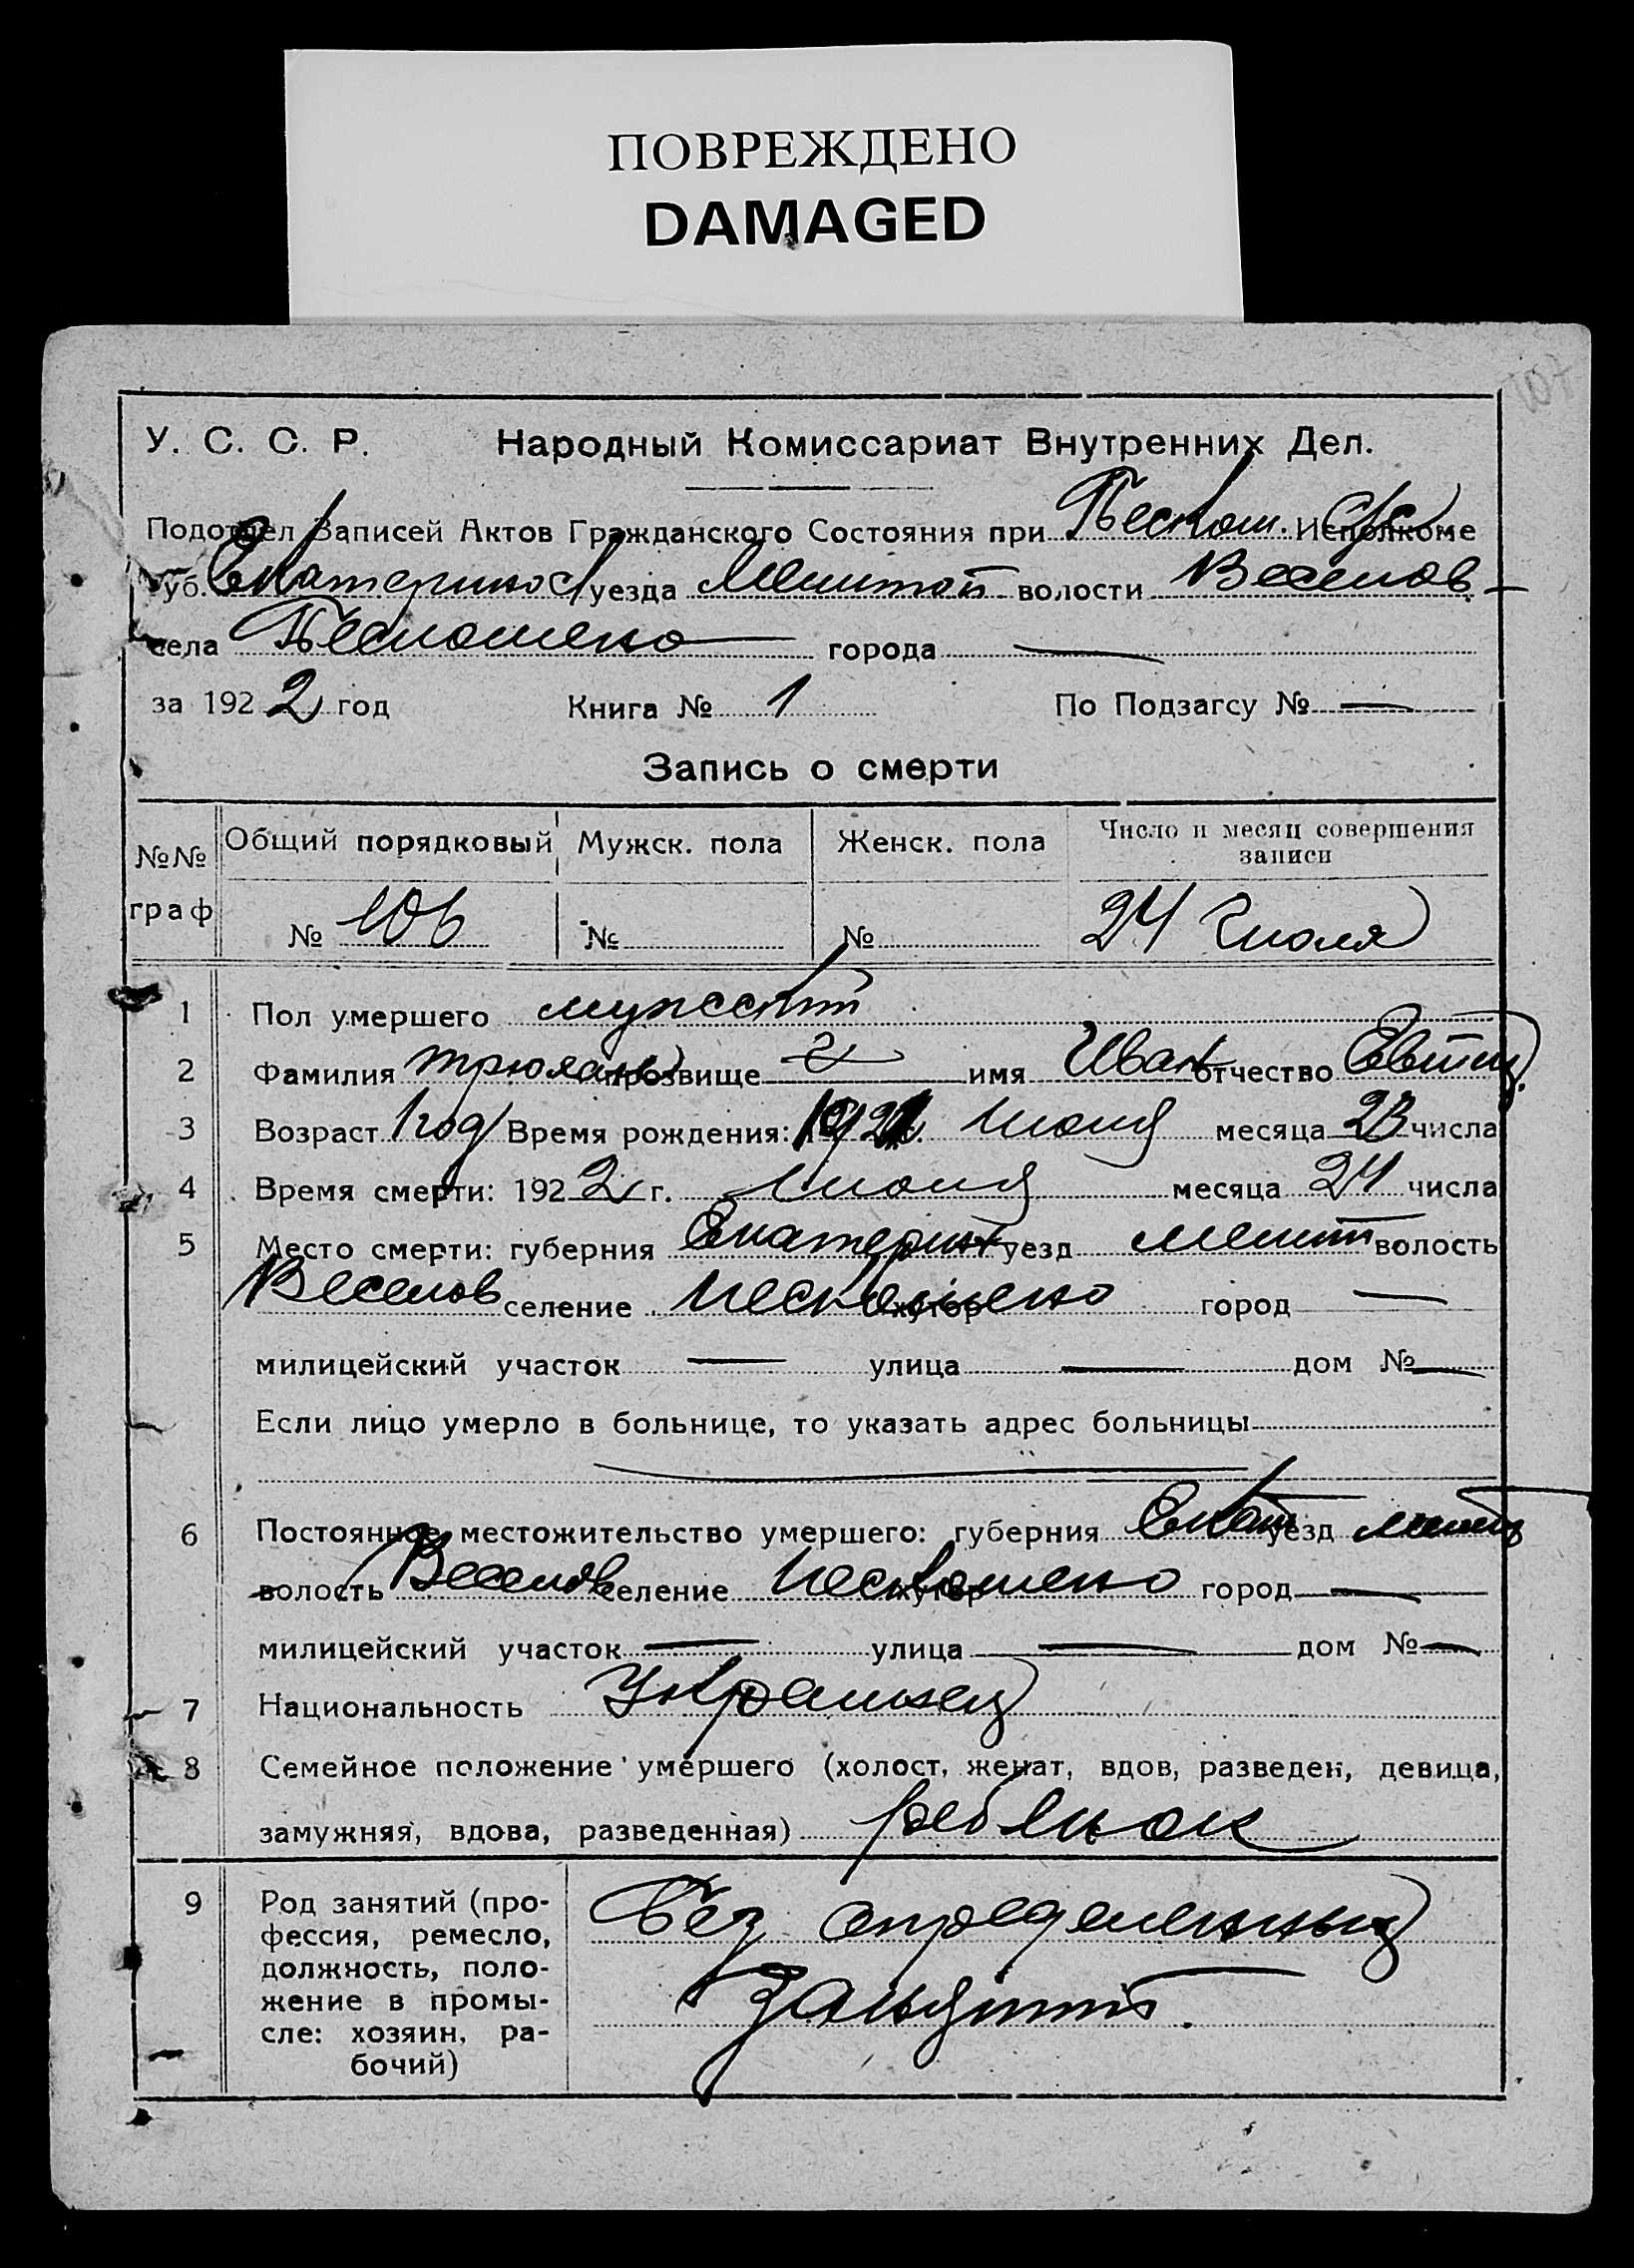 ПОВРЕЖДЕНО
DAMAGED
У. С. С. Р. Народный Комиссариат Внутренних Дел.
Подотдел Записей Актов Гражданского Состояния при Пескош. Исполкоме
Губ. Екатеринос уезда Мелитоп волости Веселов
села Пескошено города —
за 1922 год Книга № 1 По Подзагсу № —
Запись о смерти
№№ граф Общий порядковый Мужск. пола Женск. пола Число и месяц совершения записи
№ 106 № № 24 Июля
1 Пол умершего мужской
2 Фамилия прозвище имя Иван отчество
3 Возраст 1 год Время рождения: 1921 г. месяца 23 числа
4 Время смерти: 1922 г. месяца 24 числа
5 Место смерти: губерния Екатерин уезд Мелит волость
Веселов селение Пескошено хутор город —
милицейский участок — улица — дом № —
Если лицо умерло в больнице, то указать адрес больницы
6 Постоянное местожительство умершего: губерния Екат уезд Мелит
волость Веселов селение Пескошено хутор город —
милицейский участок — улица — дом № —
7 Национальность Украинец
8 Семейное положение умершего (холост, женат, вдов, разведен, девица,
замужняя, вдова, разведенная) ребенок
9 Род занятий (про-
фессия, ремесло,
должность, поло-
жение в промы-
сле: хозяин, ра-
бочий)
Без определенных
занятий.